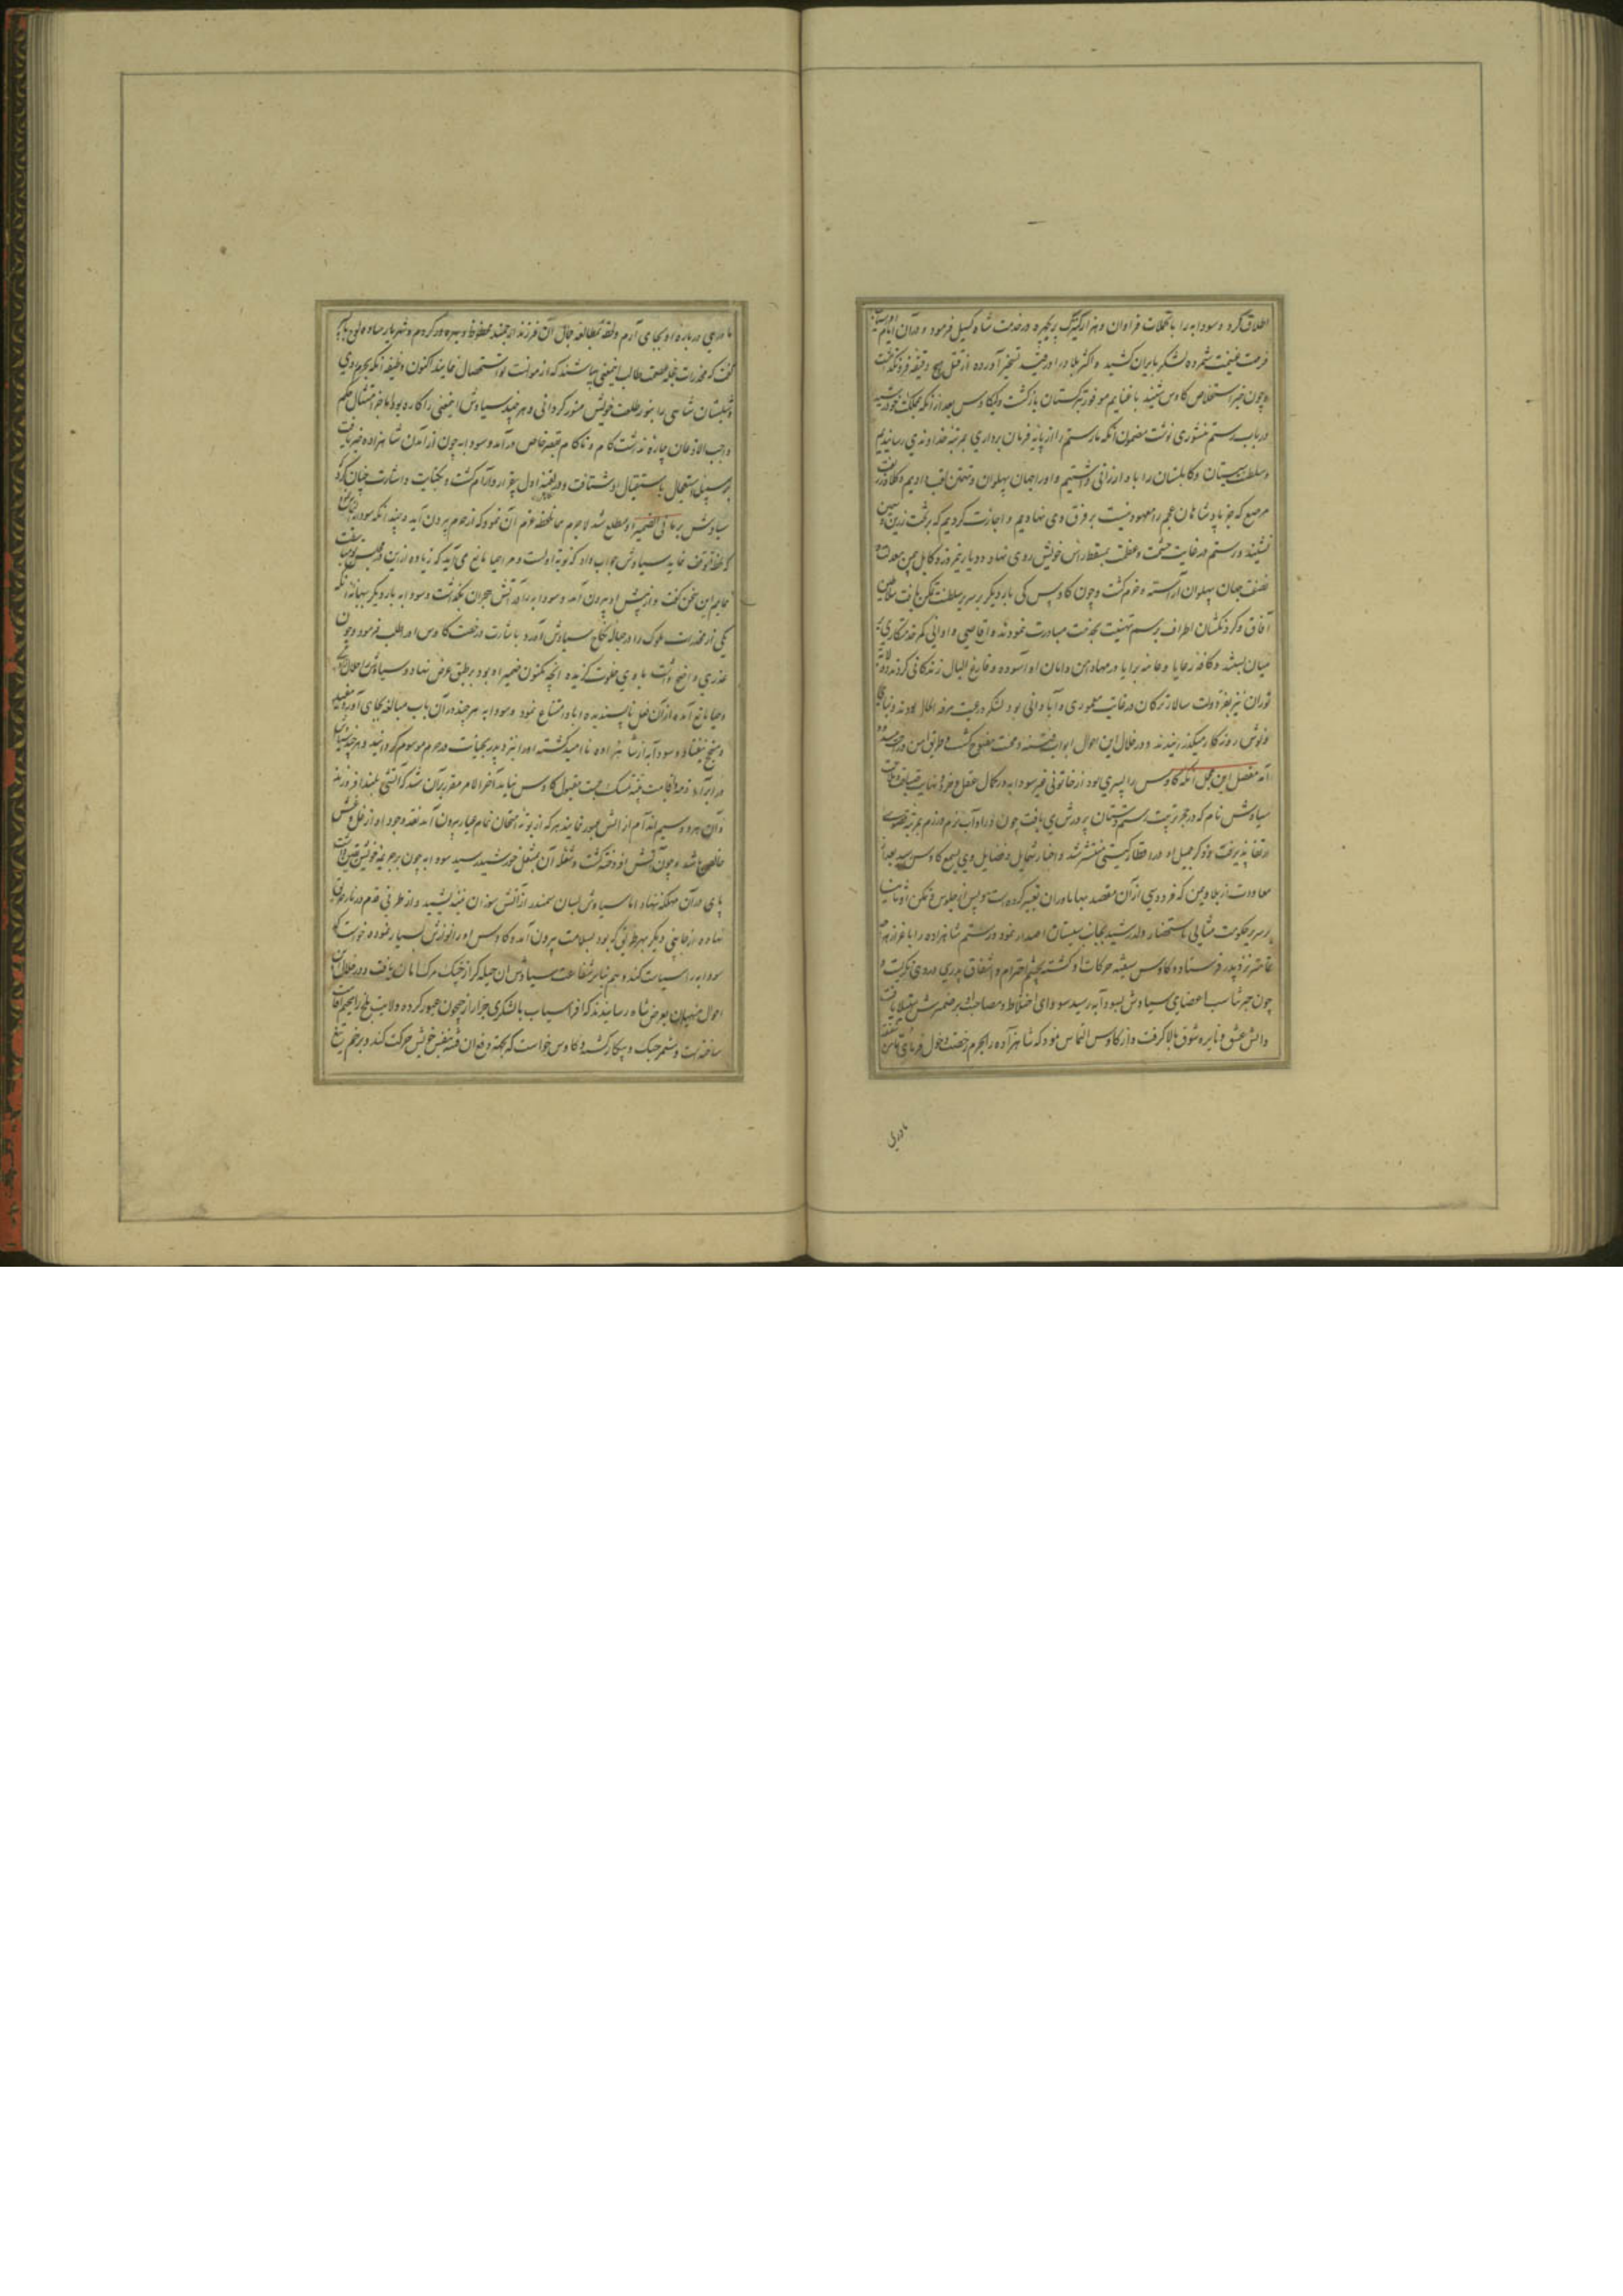 اطلاق کرد و سودابه را با تجملات فراوان و هزار کنیزک پریچهره در خدمت شاه کسیل فرمود و در آن ایام
فرصت غنیمت شمرده لشکر بایران کشید و اکثر بلاد را در حیّز تسخیر آورده از قتل هیچ دقیقه فرو نکذاشت
و چون خبر استخلاص کاوس شنید با غنایم موفور بترکستان بازکشت و کیکاوس بعد از آنکه بمملکت خود رسید
در باب رستم منشوری نوشت مضمون آنکه ما رستم را از پایه فرمان برداری بمرتبه خداوندی رسانیدیم
و سلطنت سیستان و کابلستان را باو ارزانی داشتیم و او را جهان پهلوان و تهمتن لقب دادیم و کلاه
مرصع که جز پادشاهان عجم را معهود نیست بر فرق وی نهادیم و اجازت کردیم که بر تخت زرین
نشیند و رستم در غایت حشمت و عظمت بمسقط راس خویش روی نهاد و دیار نیمروز و کابل بیمن معدلت و
نصفت جهان پهلوان آراسته و خرم کشت و چون کاوس کی بار دیکر بر سریر سلطنت تمکن یافت سلاطین
آفاق و کردنکشان اطراف برسم تهنیت بخدمت مبادرت نمودند و اقاصی و ادانی کمر خدمتکاری بر
میان بستند و کافه رعایا و عامه برایا در مهاد امن و امان او آسوده و فارغ البال زندکانی کردند
توران نیز بفر دولت سالار ترکان در غایت معموری و آبادانی بود لشکر و رعیت مرفه الحال بودند
و نوش روزکار میکذرانیدند و در خلال این احوال ابواب فتنه و محنت مفتوح کشت و طریق امن
مفصل این مجمل آنکه کاوس را پسری بود از خاتونی غیر سودابه در کمال عقل و خرد و نهایت
سیاوش نام که در حجر تربیت رستم دستان پرورش می یافت چون در آداب بزم و رزم بمرتبه قصوی
ارتقا پذیرفت و ذکر جمیل او در اقطار کیتی منتشر شد و اخبار شمایل و فضایل وی بسمع کاوس رسید بعد از
معاودت از بلاد یمن که فردوسی از آن مقصد بهاماوران تعبیر کرده است و پس از جلوس و تمکن او
بر سریر حکومت مثالی باستحضار ولد رشید بجانب سیستان اصدار نمود و رستم شاهزاده را باعزاز هر
تمامتر نزد پدر فرستاده کاوس شیفته حرکات او کشته بچشم احترام و اشفاق پدری در وی نکریست و
چون خبر تناسب اعضای سیاوش بسودابه رسید سودای اختلاط و مصاحبت او بر ضمیرش استیلا یافت
و آتش عشق و نایره شوق بالا کرفت و از کاوس التماس نمود که شاهزاده را بحرم رخصت دخول فرمای
مادری
مادری در باره او بجای آرم و لحظه بمطالعه جمال آن فرزند ارجمند محظوظ و بهره ور کردم و شهریار ساده لوح
کفت که مخدرات طالب این معنی میباشند که از موانست تو استحصال نمایند اکنون وظیفه آنکه بحرم در آی
و شبستان شاهی را بنور طلعت خویش منور کردانی و هر چند سیاوش این معنی را کاره بود اما جز امتثال حکم
واجب الاذعان چاره نداشت کام و ناکام بقصر خاص درآمد و سودابه چون از آمدن شاهزاده خبر یافت
بر سبیل استعجال باستقبال او شتافت و در لقیه اول بیقرار و آرام کشت و بکنایت و اشارت چنان کرد که
سیاوش بر ما فی الضمیر او مطلع شد لاجرم همان لحظه عزم آن نمود که از حرم بیرون آید هر چند آنکه سودابه
که لحظه توقف نماید سیاوش جواب داد که نوبت اول است و مرا حیا مانع می آید که زیاده ازین
نمایم این سخن کفت و از پیش او بیرون آمد و سودابه را در آتش هجران بکذاشت و سودابه بار دیکر ببهانه آنکه
یکی از مخدرات ملوک را در حباله نکاح سیاوش آورد باشارت و رخصت کاوس او را طلب فرمود و چون
عذری واضح نداشت با وی خلوت کزیده آنچه مکنون ضمیر او بود بر طبق عرض نهاد و سیاوش را
و حیا مانع آمده از آن فعل ناپسندیده ابا و امتناع نمود و سودابه هر چند در آن باب مبالغه بجای آورد مفید
و منجح نیفتاد و سودابه از شاهزاده ناامید کشته او را نزد پدر بخیانت در حرم موسوم کردانید و هر چند
در ابرا ذمه و اقامت بینه تمسک جست مقبول کاوس نیامد آخر الامر مقرر بر آن شد که آتشی بلند افروزند
و آن هر دو سیم اندام از آتش عبور نمایند هر که از بوته امتحان تمام عیار بیرون آمد نقد وجود او از غل و غش
خالص باشد و چون آتش افروخته کشت و شعله آن بمشعل خورشید رسید سودابه چون بر جریمه خویش
پای در آن مهلکه ننهاد اما سیاوش بسان سمندر از آتش سوزان نیندیشید و از طرفی قدم در نار
نهاده از جانبی دیکر بهر طریقی که بود بسلامت بیرون آمد و کاوس او را نوازش بسیار نموده خواست که
سودابه را سیاست کند و هم بنابر شفاعت سیاوش آن حیله کر از چنک مرک امان یافت و در خلال این
احوال منهیان بعرض شاه رسانیدند که افراسیاب با لشکری جرار از جیحون عبور کرده و ولایت بلخ را مخیم اقامت
ساخته است و مستعد جنک و پیکار کشته و کاوس خواست که بجهت دفع آن فتنه بنفس خویش حرکت کند و بزخم تیغ